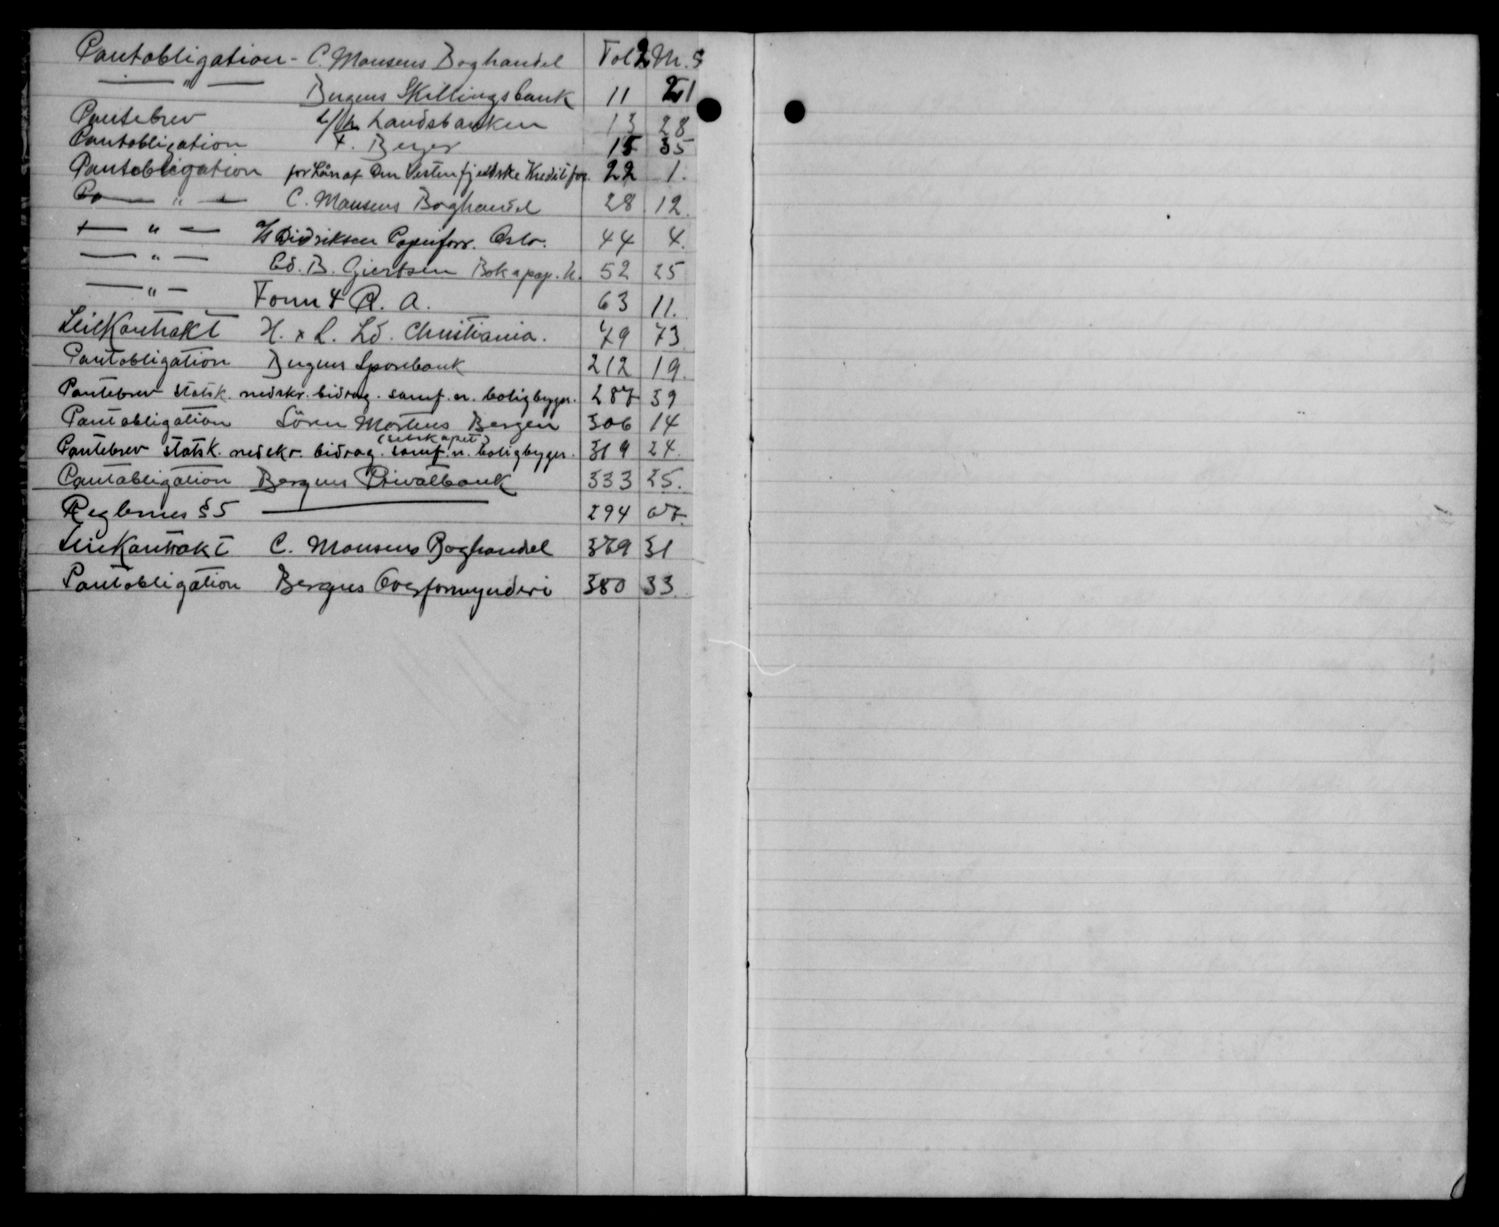 Pantobligation - C. Monsens Boghandel Fol 2 Nr. 5
— " — Bergens Skillingsbank 11 21
Pantebrev Landsbanken 13 28
Pantobligation t. Beyer 15 35
Pantobligation for Lån af Den Vestenfjeldske Kreditfor. 22 1.
Do — " — C. Monsens Boghandel 28 12.
— " — A/S Didriksen Papirforr. Oslo. 44 4.
— " — Ed. B. Giertsen Bok & pap. h. 52 25
— " — 63 11.
Leiekontrakt H. & L. Ld. Christiania. 49 73
Pantobligation Bergens Sparebank 212 19.
Pantebrev statsk. nedskr. bidrag. samf. n. boligbygn. 287 39
Pantobligation Sören Mortens Bergen 306 14
Pantebrev statsk. nedskr. bidrag. samf. n. boligbygn. (selskapet) 319 24.
Pantobligation Bergens Privatbank 333 25.
Reglernes § 5 — 294 07.
Leiekontrakt C. Monsens Boghandel 369 31
Pantobligation Bergens Overformynderi 380 33.